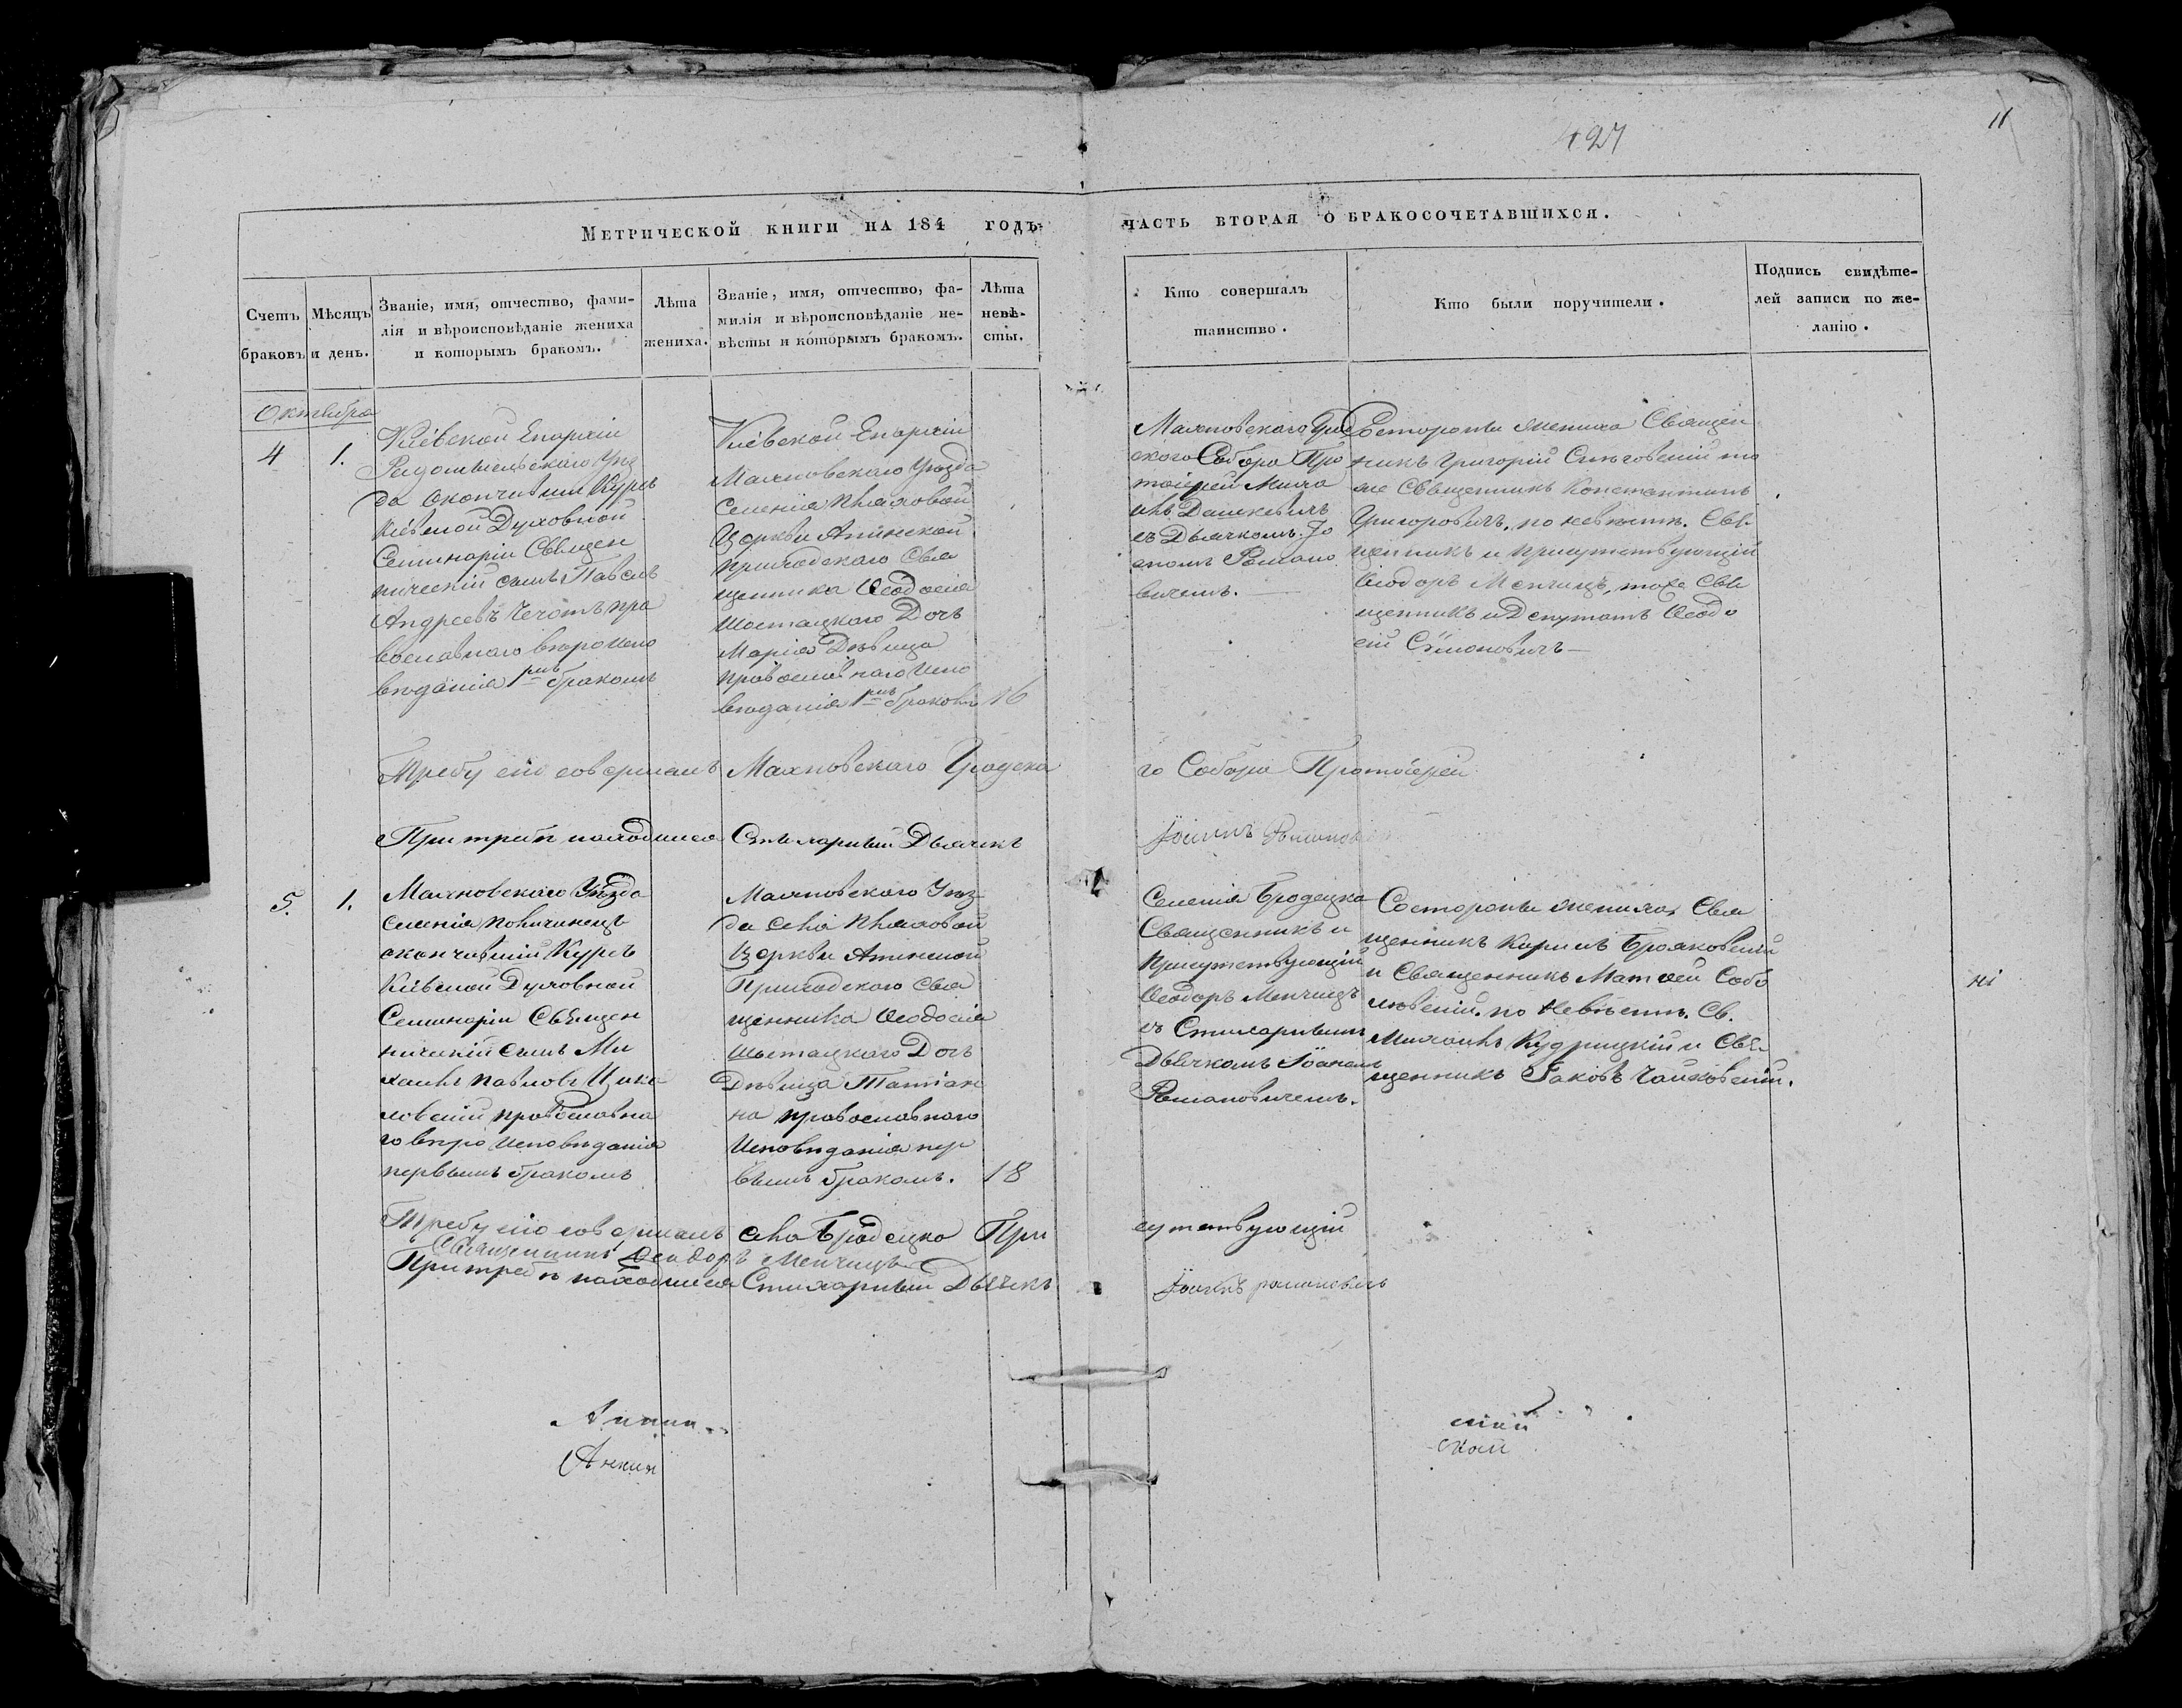 427
11
Метрической книги на 184 годъ
часть вторая о бракосочетавшихся.
Счетъ браковъ
Мѣсяцъ и день.
Званіе, имя, отчество, фами-
лія и вѣроисповѣданіе жениха
и которымъ бракомъ.
Лѣта
жениха.
Званіе, имя, отчество, фа-
милія и вѣроисповѣданіе не-
вѣсты и которымъ бракомъ.
Лѣта
невѣ-
сты.
Кто совершалъ
таинство.
Кто были поручители.
Подпись свидѣте-
лей записи по же-
ланію.
Октября
4
1.
Кіевской Епархіи
Радомысльскаго Уѣз
да окончившій Курсъ
Кіевской Духовной
Семинаріи Священ
ническій сынъ Павелъ
Андреевъ Чехотъ пра
вославнаго вѣроиспо
вѣданія 1мъ бракомъ
Кіевской Епархіи
Махновскаго Уѣзда
Селенія Пляховой
Церкви Аннской
приходскаго Свя
щенника Ѳеодосія
Шостацкого Дочь
Марія Дѣвица
православнаго испо
вѣданія 1мъ бракомъ
16
Махновскаго Град
скаго Собора Про
тоіерей Миха
илъ Дашкевичъ
съ Дьячкомъ Іо
анномъ Романо
вичемъ.
Состороны жениха Священ
никъ Григорій Снѣговскій то
же Священникъ Константинъ
Григоровичъ, по невѣстѣ. Свя
щенникъ и присутствующій
Ѳеодоръ Менчицъ, тоже Свя
щенникъ и Депутатъ Ѳеодо
сій Симоновичъ
Требу сію совершалъ Махновскаго Градска
го Собора Протоіерей
При требѣ находился Стихарный Дьячекъ
Іоаннъ Романов
5.
1.
Махновскаго Уѣзда
Селенія
окончившій Курсъ
Кіевской Духовной
Семинаріи Священ
ническій сынъ Ми
хаилъ Павловъ
ловскій православна
го вѣро исповѣданія
первымъ бракомъ
Махновскаго Уѣз
да села Пляховой
Церкви Аннской
Приходскаго Свя
щенника Ѳеодосія
Шостацкаго Дочь
Дѣвица Татіан
на православнаго
Исповѣданія пер
вымъ бракомъ.
18
Селенія Бродецка
Священникъ и
Присутствующій
Ѳеодоръ Менчицъ
съ Стихарнымъ
Дьячкомъ Іоанномъ
Романовичемъ.
Состороны жениха Свя
щенникъ Кирилъ
и Священникъ Матѳей Собо
левскій. по Невѣстѣ. Св.
Михаилъ Кудрицкій и Свя
щенникъ Іаковъ Чайковскій.
ні
Требу сію совершалъ села Бродецка При
сутствующій
Священникъ Ѳеодоръ Менчицъ
При требѣ находился Стихарный Дьячекъ
Іоаннъ романовичъ
Аннин
ской
Аннин
ской